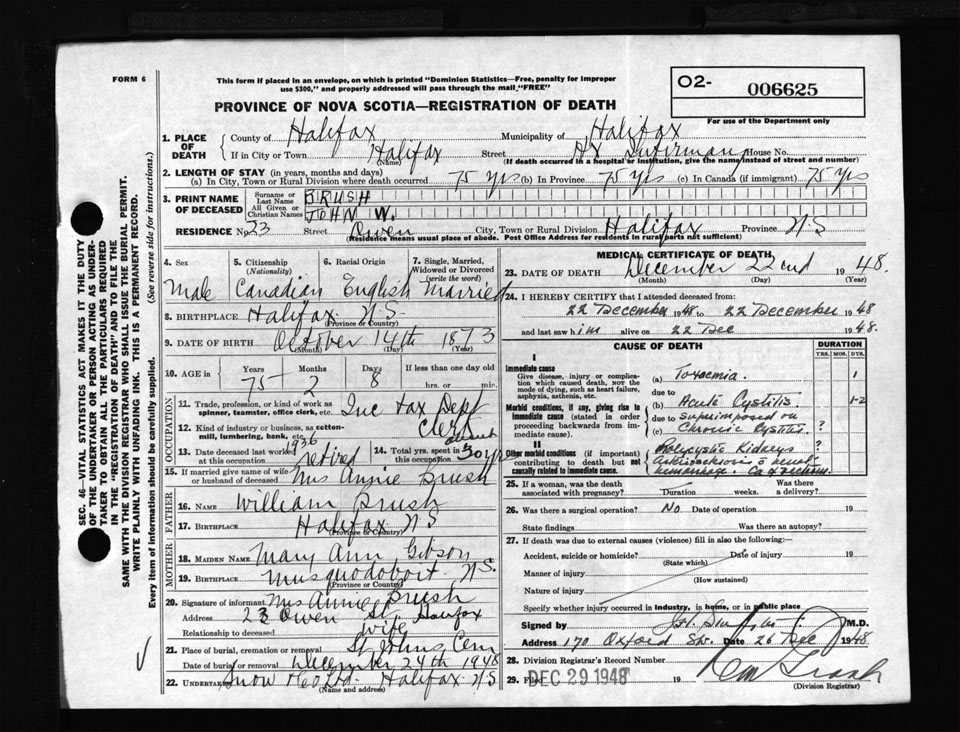 FORM 6
This form if placed in an envelope, on which is printed "Dominion Statistics—Free, penalty for improper
use $300," and properly addressed will pass through the mail "FREE"
O2- 006625
For use of the Department only
PROVINCE OF NOVA SCOTIA—REGISTRATION OF DEATH
1. PLACE OF DEATH County of Halifax Municipality of Halifax
If in City or Town Halifax (Name) Street Hx Infirmary House No.
(If death occurred in a hospital or institution, give the name instead of street and number)
2. LENGTH OF STAY (in years, months and days)
(a) In City, Town or Rural Division where death occurred 75 Yrs (b) In Province 75 Yrs (c) In Canada (if immigrant) 75 Yrs
3. PRINT NAME OF DECEASED Surname or Last Name BRUSH
All Given or Christian Names JOHN W.
RESIDENCE No. 23 Street Owen City, Town or Rural Division Halifax Province N.S
(Residence means usual place of abode. Post Office Address for residents in rural parts not sufficient)
4. Sex 5. Citizenship (Nationality) 6. Racial Origin 7. Single, Married, Widowed or Divorced (write the word)
Male Canadian English Married
8. BIRTHPLACE Halifax N.S.
(Province or Country)
9. DATE OF BIRTH October 14th 1873
(Month) (Day) (Year)
10. AGE in Years Months Days If less than one day old
75 2 8 hrs. or min.
OCCUPATION
11. Trade, profession, or kind of work as spinner, teamster, office clerk, etc. Inc Tax Dept
12. Kind of industry or business, as cotton-mill, lumbering, bank, etc. Clerk
13. Date deceased last worked at this occupation 1936 retired 14. Total yrs. spent in this occupation about 30 yrs
15. If married give name of wife or husband of deceased Mrs Annie Brush
FATHER
16. Name William Brush
17. BIRTHPLACE Halifax N.S
(Province or Country)
MOTHER
18. MAIDEN NAME Mary Ann Gibson
19. BIRTHPLACE Musquodoboit N.S.
(Province or Country)
20. Signature of informant Mrs Annie Brush
Address 23 Owen St. Halifax
Relationship to deceased wife
21. Place of burial, cremation or removal St Johns Cem
Date of burial or removal December 24th 1948
22. Undertaker Snow & Co Ltd. Halifax N.S
(Name and address)
MEDICAL CERTIFICATE OF DEATH
23. DATE OF DEATH December 22nd 1948.
(Month) (Day) (Year)
24. I HEREBY CERTIFY that I attended deceased from:
22 December 1948 to 22 December 1948
and last saw him alive on 22 Dec 1948.
CAUSE OF DEATH DURATION
YRS. MOS. DYS.
I
Immediate cause
Give disease, injury or complication which caused death, NOT the mode of dying, such as heart failure, asphyxia, asthenia, etc.
(a) Toxaemia. 1
due to
Morbid conditions, if any, giving rise to immediate cause (stated in order proceeding backwards from immediate cause).
(b) Acute Cystitis. 1-2
due to Superimposed on
(c) Chronic Cystitis. ?
II
Other morbid conditions (if important) contributing to death but not causally related to immediate cause.
Polycystic Kidneys ?
Ca of rectum.
25. If a woman, was the death associated with pregnancy? Duration weeks. Was there a delivery?
26. Was there a surgical operation? No Date of operation 19
State findings Was there an autopsy?
27. If death was due to external causes (violence) fill in also the following:—
Accident, suicide or homicide? Date of injury 19
(State which)
Manner of injury
(How sustained)
Nature of injury
Specify whether injury occurred in industry, in home, or in public place
Signed by M.D.
Address 170 Oxford St. Date 26 Dec 1948
28. Division Registrar's Record Number
29. Filed DEC 29 1948 19
(Division Registrar)
SEC. 46—VITAL STATISTICS ACT MAKES IT THE DUTY
OF THE UNDERTAKER OR PERSON ACTING AS UNDER-
TAKER TO OBTAIN ALL THE PARTICULARS REQUIRED
IN THE "REGISTRATION OF DEATH" AND TO FILE THE
SAME WITH THE DIVISION REGISTRAR WHO SHALL ISSUE THE BURIAL PERMIT.
WRITE PLAINLY WITH UNFADING INK. THIS IS A PERMANENT RECORD.
Every item of information should be carefully supplied. (See reverse side for instructions.)